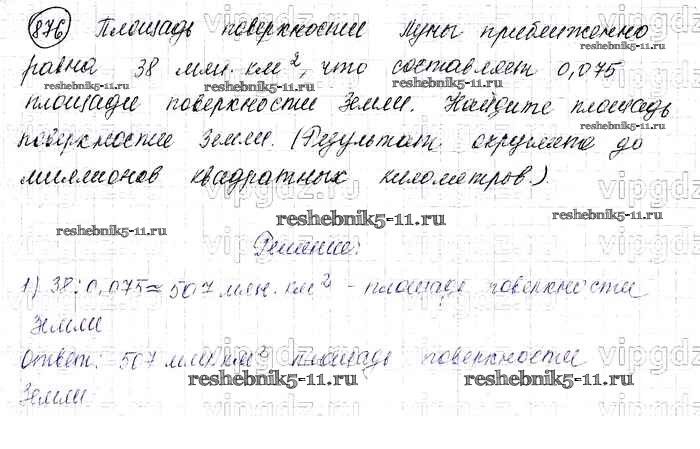 876 Площадь поверхности Луны приближенно
равна 38 млн. км², что составляет 0,075
reshebnik5-11.ru reshebnik5-11.ru
площади поверхности Земли. Найдите площадь
reshebnik5-11.ru
поверхности Земли. (Результат округлите до
миллионов квадратных километров.)
vipgdz vipgdz
reshebnik5-11.ru reshebnik5-11.ru reshebnik5-11.ru
Решение:
vipgdz
1) 38:0,075≈507 млн. км² - площадь поверхности
vipgdz
Земли
Ответ: 507 млн. км² площадь поверхности
vipgdz
reshebnik5-11.ru reshebnik5-11.ru
Земли
vipgdz